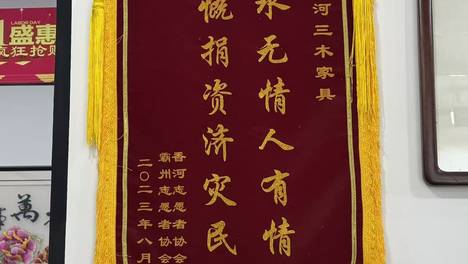 河三木家具
水无情人有情
慨捐资济灾民
香河志愿者协会
霸州志愿者协会
二〇二三年八月
LABOR DAY
盛惠
疯狂抢购
萬